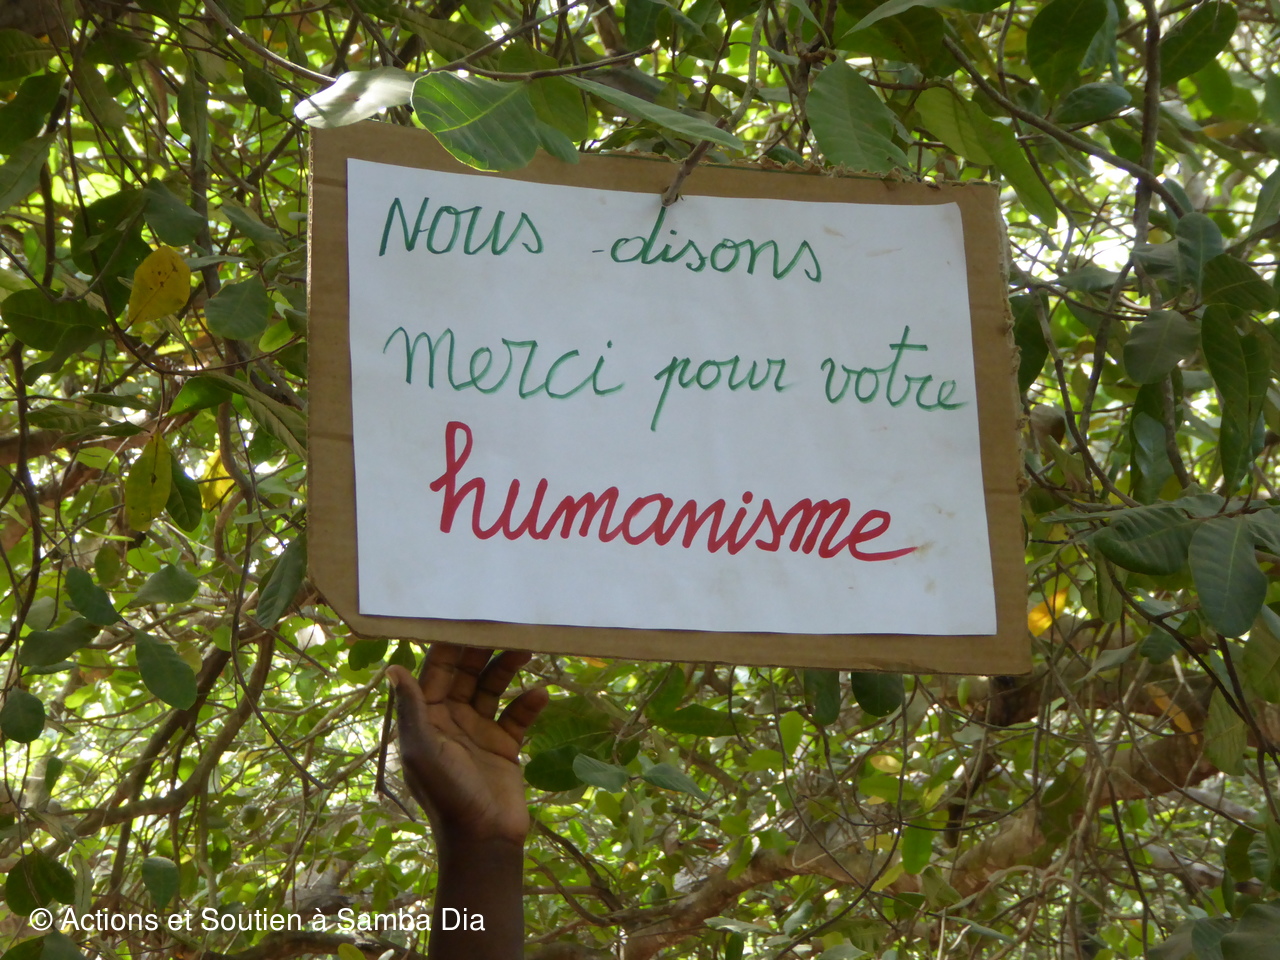 Nous disons
merci pour votre
humanisme
© Actions et Soutien à Samba Dia